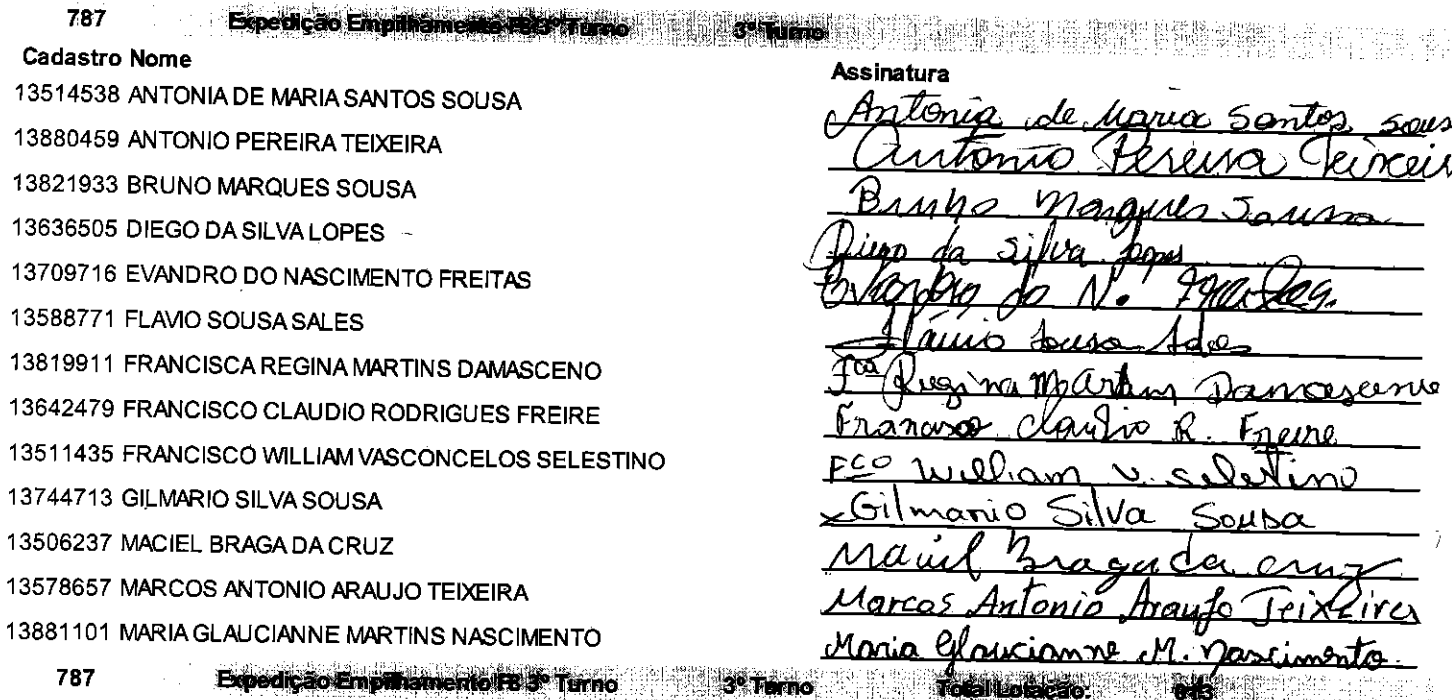 787 Expedição Empilhamento FB 3º Turno 3º Turno
Cadastro Nome Assinatura
13514538 ANTONIA DE MARIA SANTOS SOUSA Antonia de Maria Santos Sous
13880459 ANTONIO PEREIRA TEIXEIRA Antonio Pereira Teixeir
13821933 BRUNO MARQUES SOUSA Bruno Marques Sousa
13636505 DIEGO DA SILVA LOPES Diego da Silva Lopes
13709716 EVANDRO DO NASCIMENTO FREITAS Evandro do N. Freitas.
13588771 FLAVIO SOUSA SALES Flávio Sousa Sales
13819911 FRANCISCA REGINA MARTINS DAMASCENO Fca Regina Martins Damasceno
13642479 FRANCISCO CLAUDIO RODRIGUES FREIRE Francisco Claudio R. Freire
13511435 FRANCISCO WILLIAM VASCONCELOS SELESTINO Fco William V. Seletino
13744713 GILMARIO SILVA SOUSA Gilmario Silva Sousa
13506237 MACIEL BRAGA DA CRUZ Maciel Braga da Cruz
13578657 MARCOS ANTONIO ARAUJO TEIXEIRA Marcos Antonio Araujo Teixeira
13881101 MARIA GLAUCIANNE MARTINS NASCIMENTO Maria Glaucianne M. Nascimento.
787 Expedição Empilhamento FB 3º Turno 3º Turno Total Lotação: 013